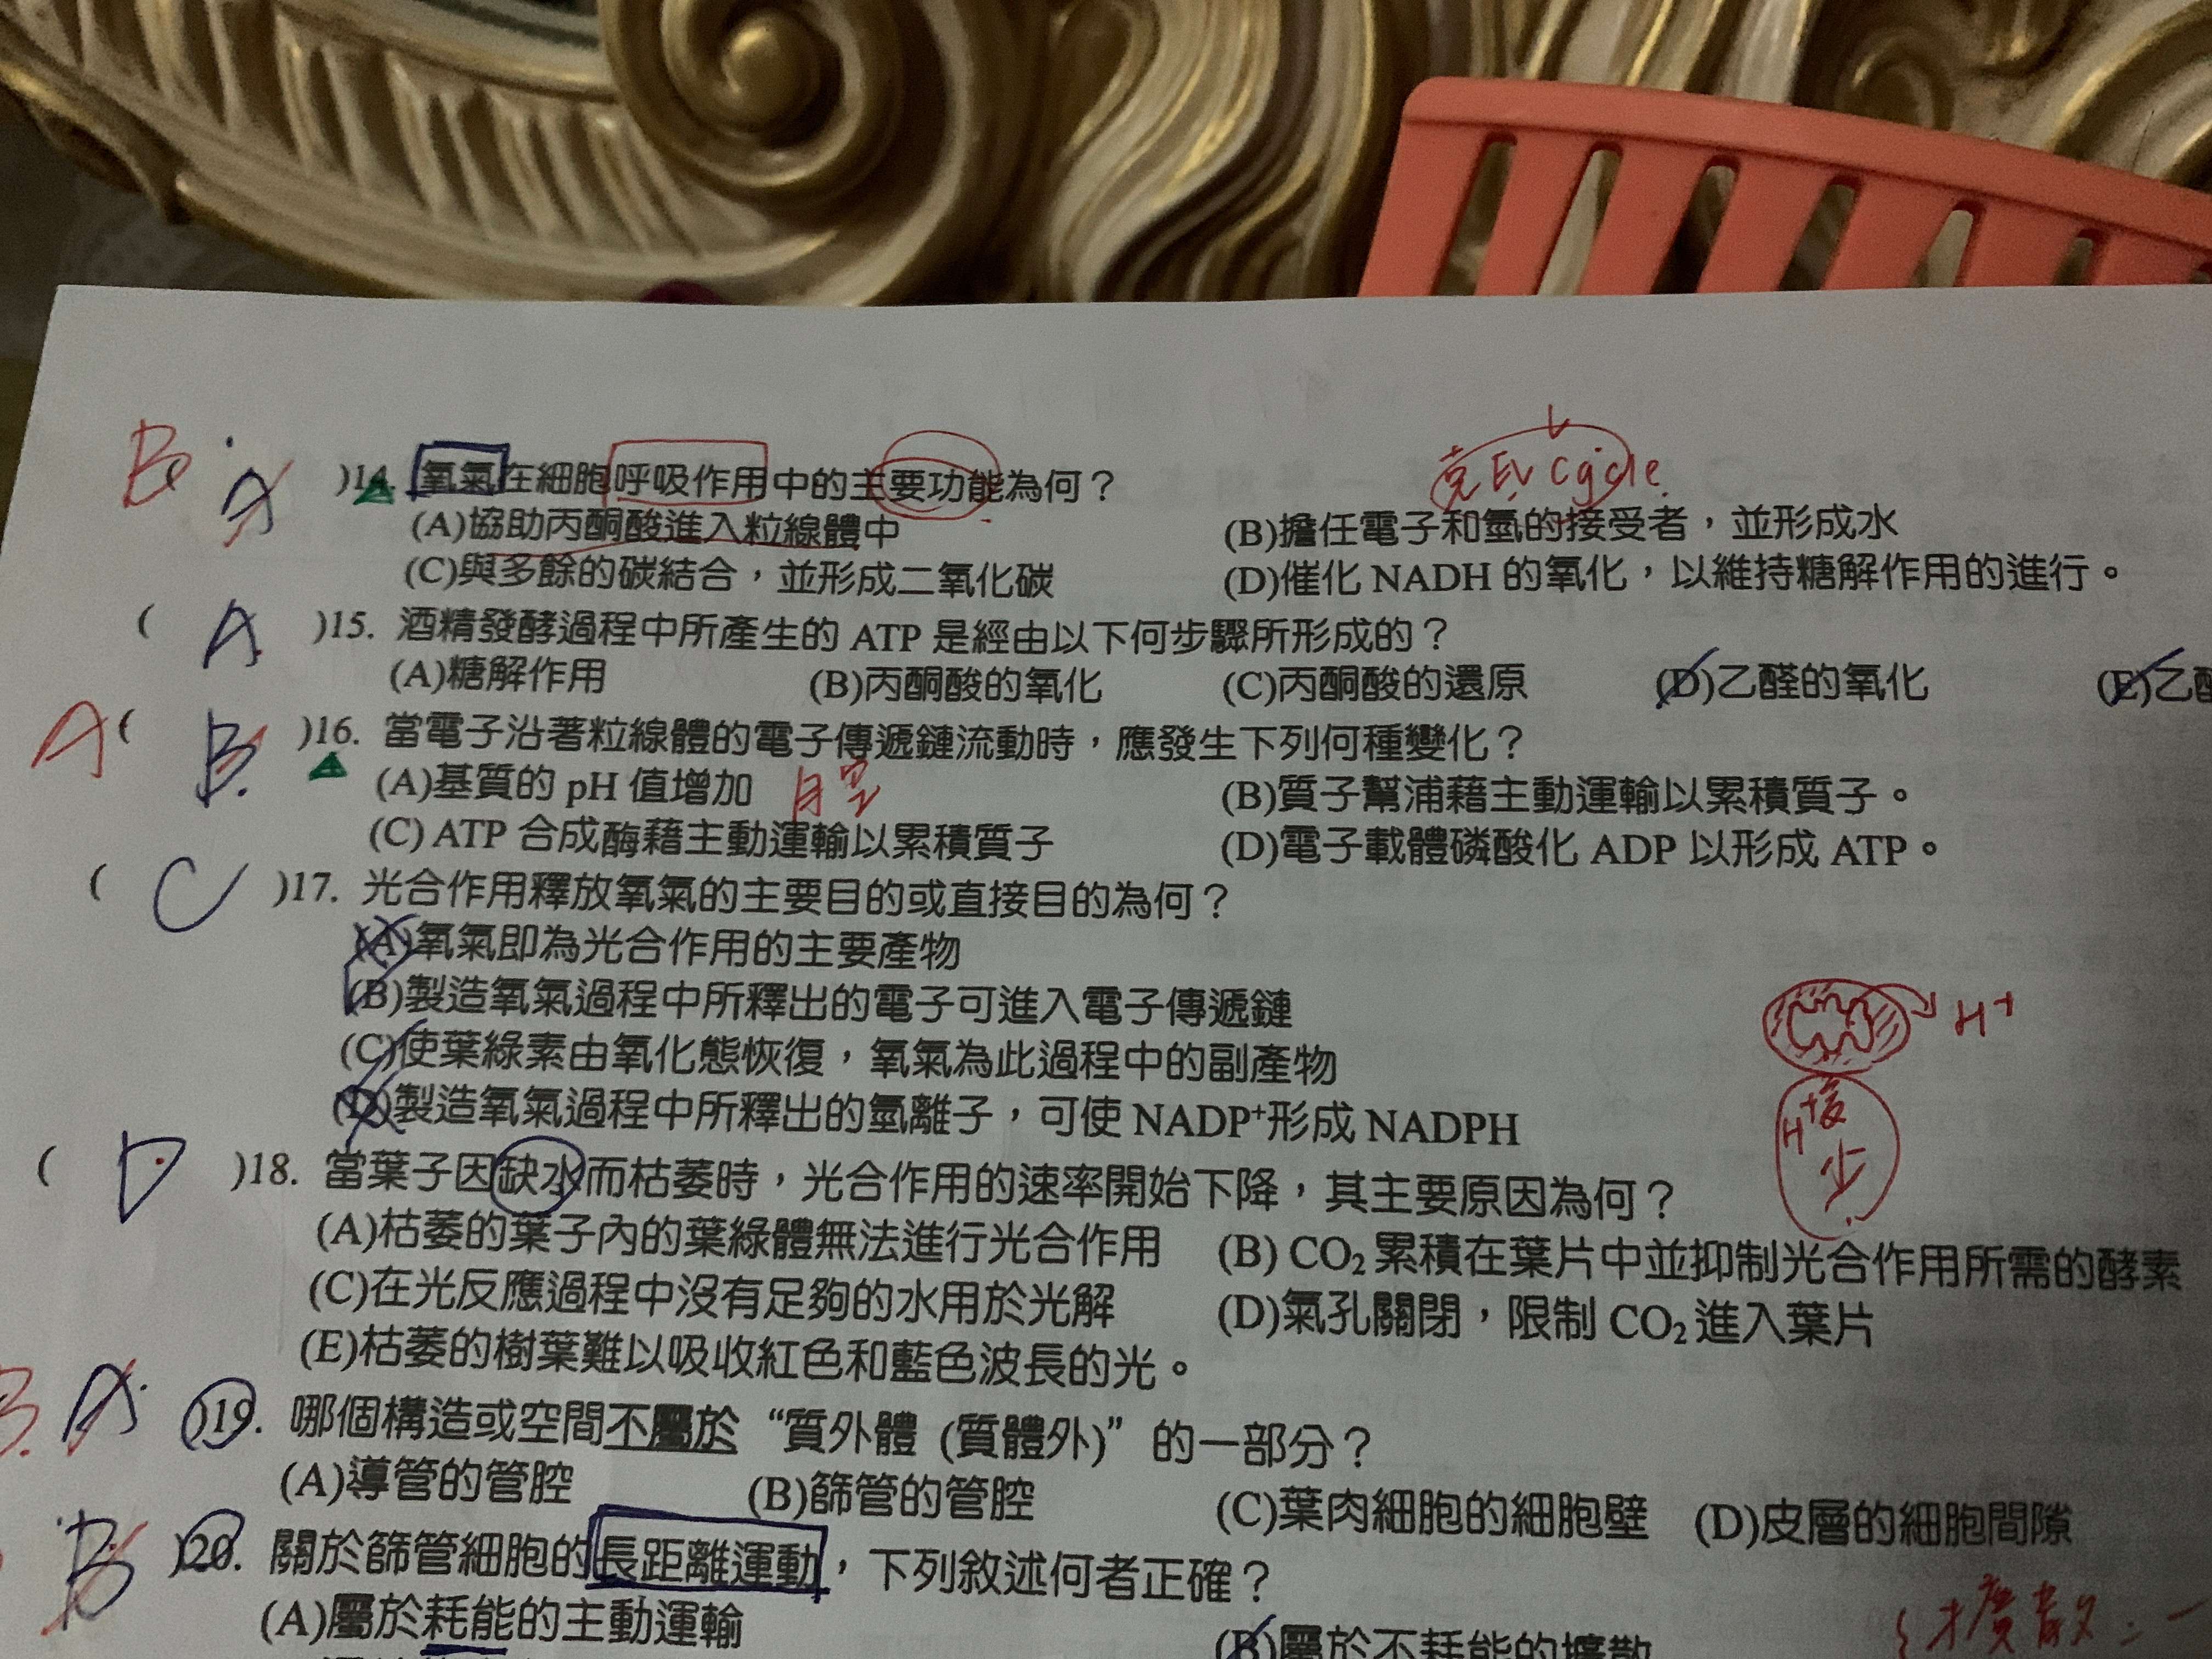 克氏 cycle
B A )14. 氧氣在細胞呼吸作用中的主要功能為何？
(A)協助丙酮酸進入粒線體中 (B)擔任電子和氫的接受者，並形成水
(C)與多餘的碳結合，並形成二氧化碳 (D)催化 NADH 的氧化，以維持糖解作用的進行。
( A )15. 酒精發酵過程中所產生的 ATP 是經由以下何步驟所形成的？
(A)糖解作用 (B)丙酮酸的氧化 (C)丙酮酸的還原 (D)乙醛的氧化 (E)乙
A ( B )16. 當電子沿著粒線體的電子傳遞鏈流動時，應發生下列何種變化？
(A)基質的 pH 值增加 (B)質子幫浦藉主動運輸以累積質子。
(C) ATP 合成酶藉主動運輸以累積質子 (D)電子載體磷酸化 ADP 以形成 ATP。
( C )17. 光合作用釋放氧氣的主要目的或直接目的為何？
(A)氧氣即為光合作用的主要產物
(B)製造氧氣過程中所釋出的電子可進入電子傳遞鏈
(C)使葉綠素由氧化態恢復，氧氣為此過程中的副產物
(D)製造氧氣過程中所釋出的氫離子，可使 NADP⁺形成 NADPH
H⁺
H⁺
少
( D )18. 當葉子因缺水而枯萎時，光合作用的速率開始下降，其主要原因為何？
(A)枯萎的葉子內的葉綠體無法進行光合作用 (B) CO₂ 累積在葉片中並抑制光合作用所需的酵素
(C)在光反應過程中沒有足夠的水用於光解 (D)氣孔關閉，限制 CO₂ 進入葉片
(E)枯萎的樹葉難以吸收紅色和藍色波長的光。
B. A )19. 哪個構造或空間不屬於 “質外體 (質體外)” 的一部分？
(A)導管的管腔 (B)篩管的管腔 (C)葉肉細胞的細胞壁 (D)皮層的細胞間隙
B )20. 關於篩管細胞的長距離運動，下列敘述何者正確？
(A)屬於耗能的主動運輸 (B)屬於不耗能的擴散
擴散：